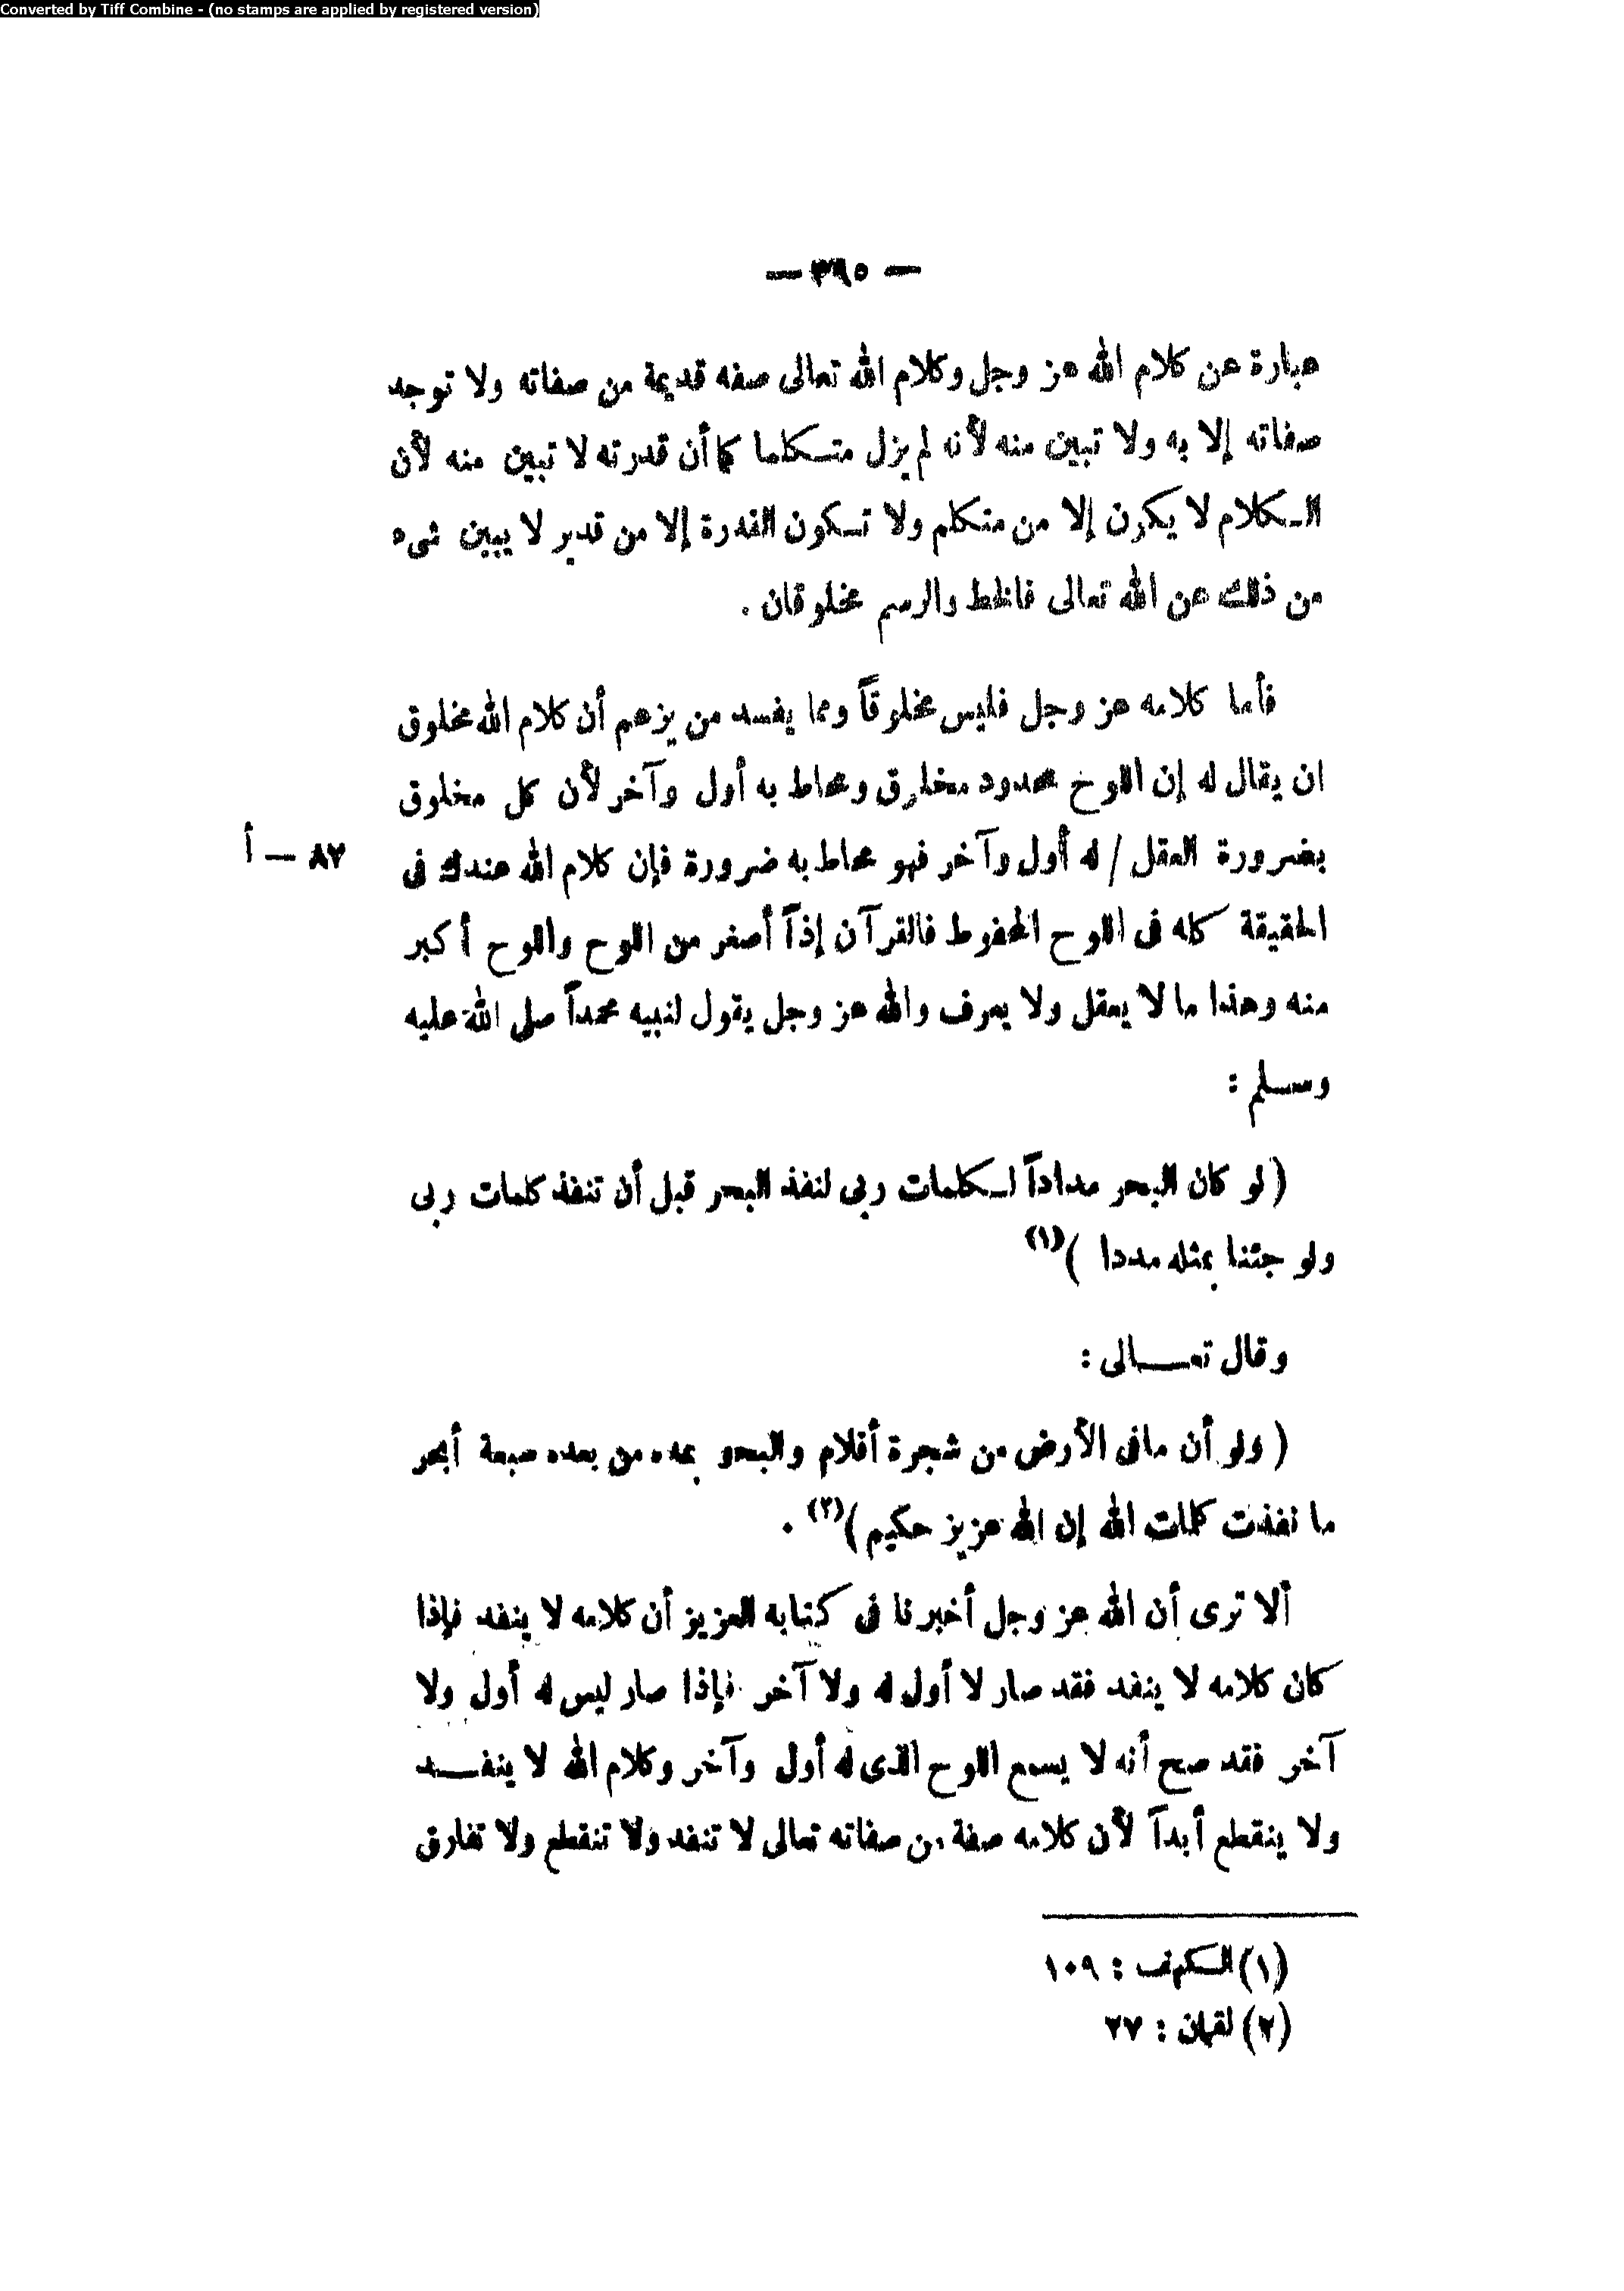 Converted by Tiff Combine - (no stamps are applied by registered version)
— ٣٦٥ —
عبارة عن كلام الله عز وجل وكلام الله تعالى صفه قديمة من صفاته ولا توجد
صفاته إلا به ولا تبين منه لأنه لم يزل متكلما كما أن قدرته لا تبين منه لأن
الكلام لا يكون إلا من متكلم ولا تكون القدرة إلا من قدير لا يبين شىء
من ذلك عن الله تعالى فالخط والرسم مخلوقان .
فأما كلامه عز وجل فليس مخلوقاً ومما يفسد من يزعم أن كلام الله مخلوق
ان يقال له إن اللوح محدود مخلوق ومحاط به أول وآخر لأن كل مخلوق
بضرورة العقل / له أول وآخر فهو محاط به ضرورة فإن كلام الله عندك فى
٨٧ — أ
الحقيقة كله فى اللوح المحفوظ فالقرآن إذاً أصغر من اللوح واللوح أكبر
منه وهذا ما لا يعقل ولا يعرف والله عز وجل يقول لنبيه محمداً صلى الله عليه
وسلم :
( لو كان البحر مداداً لكلمات ربى لنفذ البحر قبل أن تنفذ كلمات ربى
ولو جئنا بمثله مددا )(١)
وقال تعالى :
( ولو أن مافى الأرض من شجرة أقلام والبحر يمده من بعده سبعة أبحر
ما نفذت كلمات الله إن الله عزيز حكيم )(٢) .
ألا ترى أن الله عز وجل أخبرنا فى كتابه العزيز أن كلامه لا ينفد فإذا
كان كلامه لا ينفد فقد صار لا أول له ولا آخر فإذا صار ليس له أول ولا
آخر فقد صح أنه لا يسع اللوح الذى له أول وآخر وكلام الله لا ينفد
ولا ينقطع أبداً لأن كلامه صفة من صفاته تعالى لا تنفد ولا تنقطع ولا تفارق
(١) الكهف : ١٠٩
(٢) لقمان : ٢٧